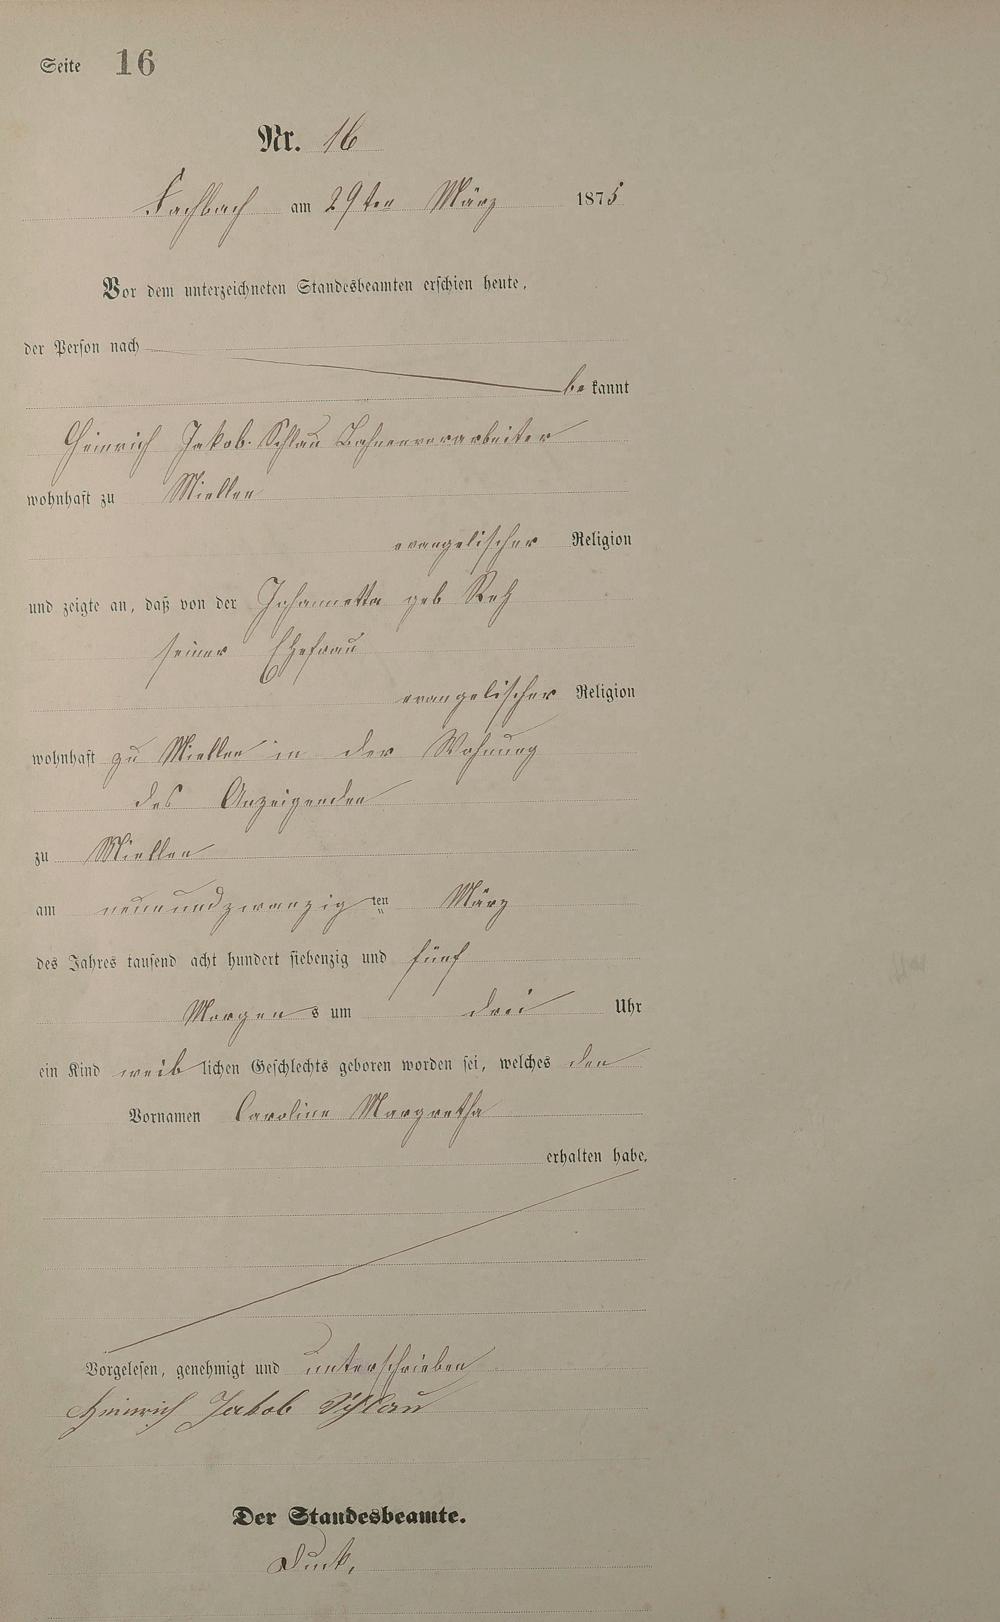 Seite 16
Nr. 16
Fachbach am 29ten März 1875
Vor dem unterzeichneten Standesbeamten erschien heute,
der Person nach
bekannt
Heinrich Jakob Schlau Bahnenvorarbeiter
wohnhaft zu Miellen
evangelischer Religion
und zeigte an, daß von der Johannetta geb Reh
seiner Ehefrau
evangelischer Religion
wohnhaft zu Miellen in der Wohnung
des Anzeigenden
zu Miellen
am neunundzwanzig ten März
des Jahres tausend acht hundert siebenzig und fünf
Morgens um drei Uhr
ein Kind weiblichen Geschlechts geboren worden sei, welches den
Vornamen Caroline Margretha
erhalten habe.
Vorgelesen, genehmigt und unterschrieben
Heinrich Jakob Schlau
Der Standesbeamte.